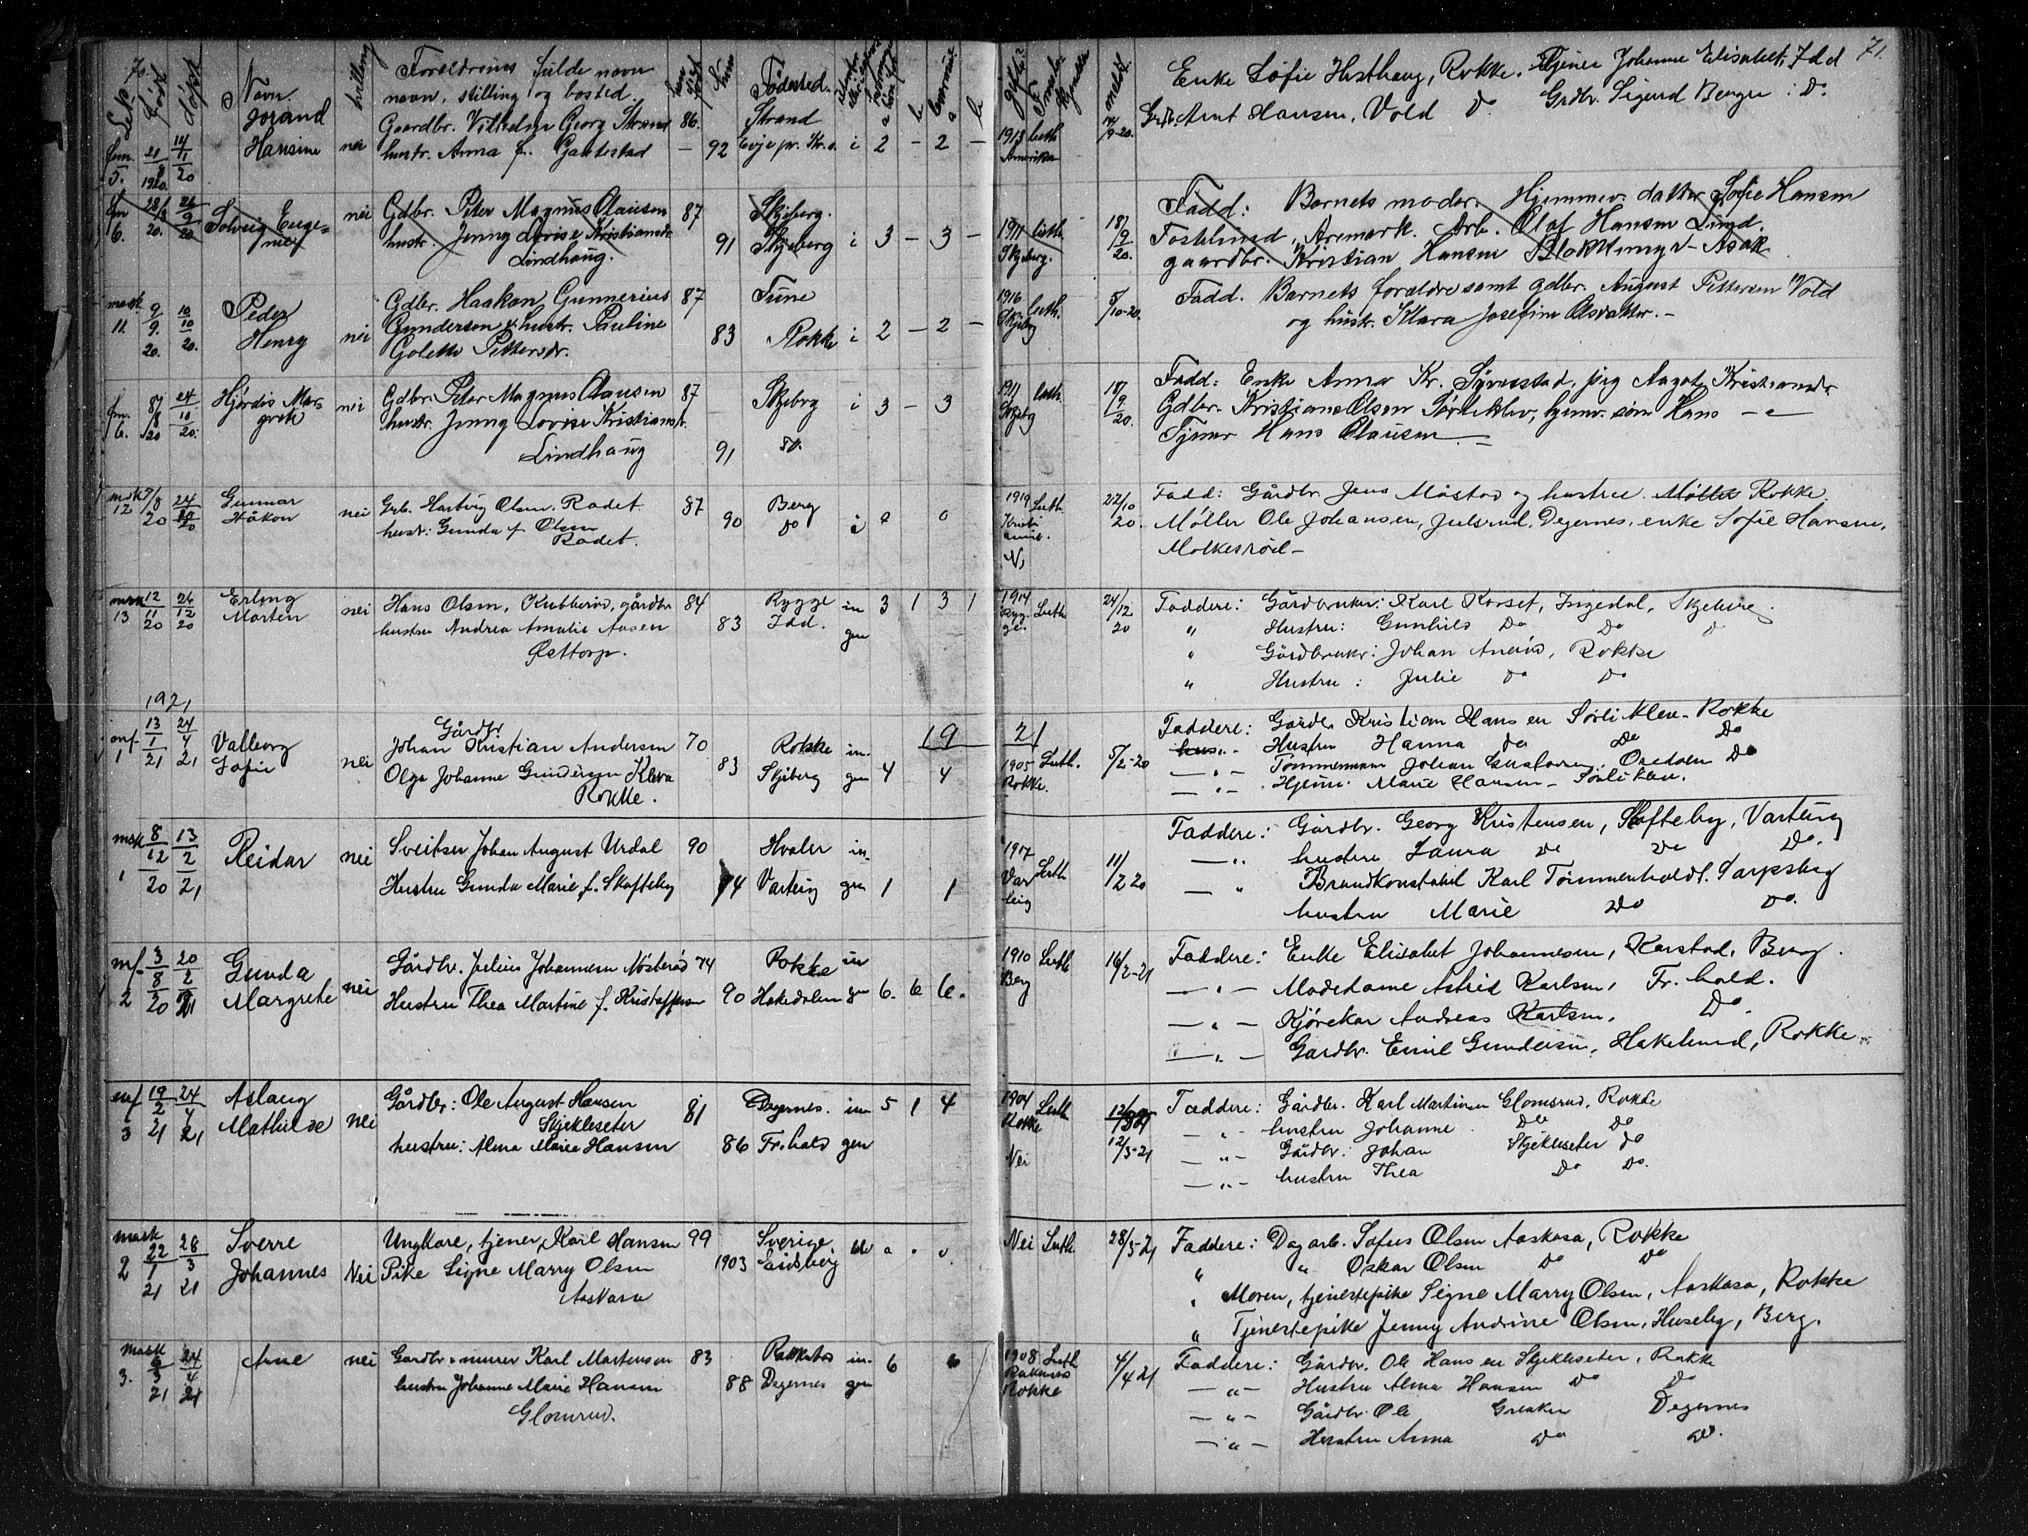 70.
Navn.
Forældrenes fulde navn
navn, stilling og bosted.
Fødested.
Født
Døpt
tvilling
Jorand
Hansine
nei
Gaardbr. Vilhelm Georg Strand 86.
hustr. Anna f. Gautestad – 92
Strand
Evje pr. Kr.s. i 2 – 2 –
fem. 5. 21/8 1920. 14/11 20
fem 6. 28/8 20. 26/9 20
Solveig Euge-
nie
nei
Gdbr. Peter Magnus Clausen 87
hustr. Jenny Lovise Kristiansdr. 91
Lindhaug.
Skjeberg.
Skjeberg i 3 – 3 –
mask 11. 9/9. 20. 10/10 20.
Peder
Henry
nei
Gdbr. Haakon Gunnerius 87
Gundersen & hustr. Pauline 83
Golette Pettersdr.
Tune
Rokke i 2 – 2 –
fem. 6. 28/8 20 24/10 20.
Hjørdis Mar-
grete
nei
Gdbr. Peter Magnus Clausen 87
hustr. Jenny Lovise Kristiansdr.
Lindhaug 91
Skjeberg i 3 – 3
do.
msk 12 20 24/10 20
Gunnar
Håkon
nei
Grb. Hartvig Olsen. Rødet. 87
hustr: Gunda f. Olsen 90
Rødet.
Berg
do i 0 0
msk 13 12/11 20 26/12 20
Erling
Morten
nei
Hans Olsen, Kubberød, gårdbr 84
hustru Andrea Amalie Aasen 83
Østtorp.
Rygge in 3 1 3 1
Idd. gen
1921
1 13/1 21 24/4 21
Valborg
Sofie
nei
Gårdbr.
Johan Kristian Andersen 70
Olga Johanne Gundersen Kleva 83
Rokke.
Rokke in-
Skjeberg gen 4 4
19
msk 1 8/12 20 13/2 21
Reidar
nei
Sveitser Johan August Urdal 90
Hustru Gunda Marie f. Skofteby 94
Hvaler in-
Varteig gen 1 1
2 3/8 20 20/2 21
Gunda
Margrete
nei
Gårdbr. Julius Johannesen Nøsterød 74
Hustru Thea Martine f. Kristoffersen 90
Rokke in
Hakedalen gn 6. 6 6.
3 19/2 21 24/4 21
Aslaug
Mathilde
nei
Gårdbr: Ole August Hansen 81
Skjekleseter
hustru: Alma Marie Hansen 86
Degernes. in 5 1 4
Fr.hald gen
mask 2 22/1 21 28/3 21
Sverre
Johannes
Nei
Ungkare, tjener, Karl Hansen 99
Pike Signe Marry Olsen 1903
Aaskasa
Sverige
Eidsberg
mask 3. 6/3 21 24/4 21
Arne
nei
Gardbr. & murer Karl Martensen 83
hustru Johanne Marie Hansen 88
Glomsrud.
Rakkestad in- 6 6
Degernes gen
71.
Enke Sofie Hesthaug, Rokke. Tjener Johanne Elisabet, Idd
Grb. Arnt Hansen, Vold Do Grdbr. Sigurd Bergre : Do.
1913 luth 14/9-20.
Amerika
1911 luth 18/9 20.
Skjeberg.
Fadd: Barnets moder. Hjemmev. datter Sofie Hansen
Fostelund, Aremark. Arb. Olaf Hansen Lund.
gaardbr. Kristian Hansen Blokkemyr – Asak
1916 luth. 5/10-20.
Skjeberg
Fadd. Barnets forældre samt gdbr. August Pettersen Vold
og hustr. Klara Josefine Olsdatter. –
1911 luth. 18/9 20.
Skjeberg
Fadd: Enke Anna Kr. Syverstad, pig Aagot Kristiansdr.
Gdbr. Kristian Olsen Sørlieklev, hjemv. søn Hans – " –
Tjener Hans Clausen. –
1919 Luth. 27/10 20.
Kristiania.
N,
Fadd: Gårdbr. Jens Mostad og hustru. Møller Rokke.
Møller Ole Johansen, Julsrud, Degernes, enke Sofie Hansen,
Molkesrød –
1914 Luth 24/12 20
Rygge.
Faddere: Gårdbruker: Karl Korset, Ingedal, Skjeberg.
" Hustru: Gunhild Do Do
" Gårdbruker: Johan Anerød, Rokke
" Hustru: Julie Do Do
21
1905 Luth. 5/2-20
Rokke.
Faddere: Gårdbr. Kristian Hansen Sørliklev – Rokke
Hustru Hanna do Do Do
– " – Tømmermann Johan Gustavsen. Do
– " – Hjemv. Marie Hansen –
1917 Luth 11/2 20
Varteig
Faddere: Gårdbr. Georg Kristensen, Skofteby, Varteig
– " hustru Laura Do Do Do.
– " Brandkonstabel Karl Tommenholdt. Sarpsborg
hustru Marie Do Do.
1910 Luth 16/2-21
Berg
Faddere: Enke Elisabet Johannesen, Karstad, Berg.
– " – Modedame Astrid Karlsen, Fr. hald.
– " – Kjørekar Andreas Karlsen, Do.
– " – Gardbr. Emil Gundersen, Hakelund, Rokke –
1904 Luth 12/3-21
Rokke
Nei
Faddere: Gårdbr. Karl Martinsen Glomsrud, Rokke
– " – hustru Johanne Do Do
– " – Gårdbr. Johan Skjekleseter do
– " – hustru Thea Do Do.
Nei Luth. 28/3-21
Faddere: Dagarb. Sofus Olsen Aaskasa, Rokke
" " Oskar Olsen Do Do
" Moren, tjenestepike Signe Marry Olsen, Aaskasa, Rokke
" Tjenestepike Jenny Andrine Olsen, Huseby, Berg.
1908 Luth 4/4 21
Rokke
Faddere: Gårdbr. Ole Hansen Skjekleseter, Rokke
– " – Hustru Alma Hansen Do Do
– " – Gårdbr. Ole Greaker Degernes
– " – Hustru Anna Do Do.